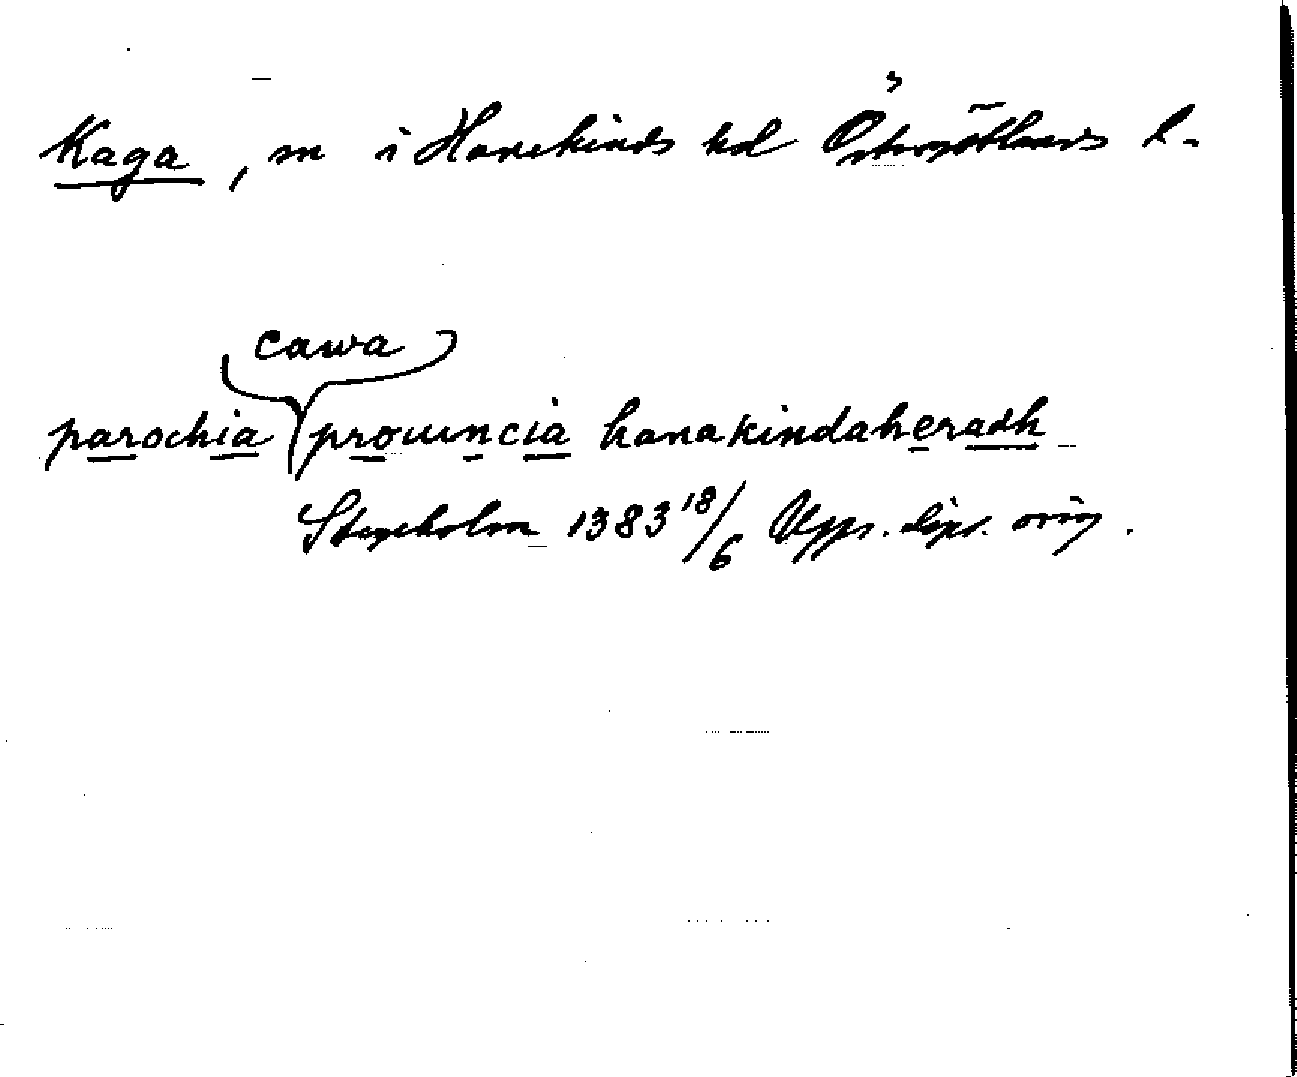 Kaga, sn i Hanekinds hd Östergötlands l.
cawa
parochia prouincia hanakindaheradh
Stegeholm 1383 18/6 Upps. dipl. orig.